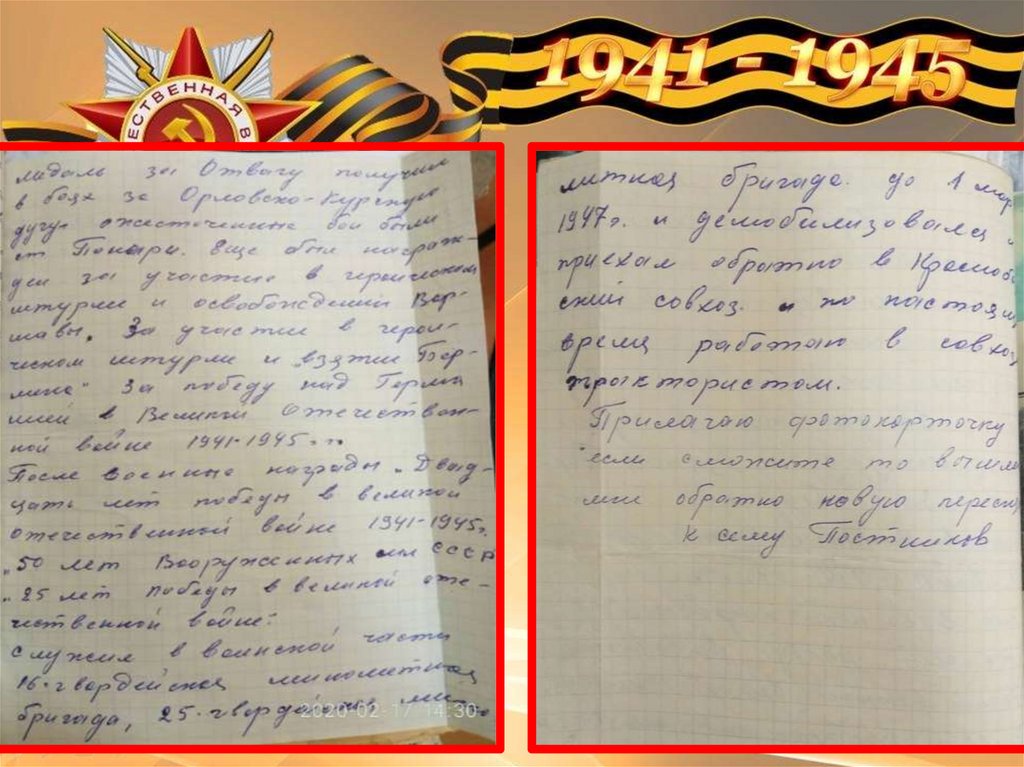 1941 - 1945
ЕСТВЕННАЯ В
медаль за Отвагу получил
в боях за Орловско-Курскую
дугу. ожесточенные бои были
ст Поныри. Еще были награж-
ден за участие в героическом
штурме и освобождении Вар-
шавы. За участие в герои-
ческом штурме и „взятие Бер-
лина" За победу над Герма
нией в Великой Отечествен-
ной войне 1941-1945 г.г.
После военные награды „Двад-
цать лет победы в великой
отечественной войне 1941-1945г.
„50 лет Вооруженных сил СССР
„25 лет победы в великой оте-
чественной войне.
Служил в воинской части
16-гвордейская минометная
бригада, 25-гвордейская мино
2020-02-17 14:30
митная бригада. до 1 мар
1947г. и демобилизовался и
приехал обратно в
ский совхоз. и по настоящ
время работаю в совхоз
трактористом.
Прилагаю фотокорточку
если сможите то вышли
мне обратно новую перес
К сему Постников